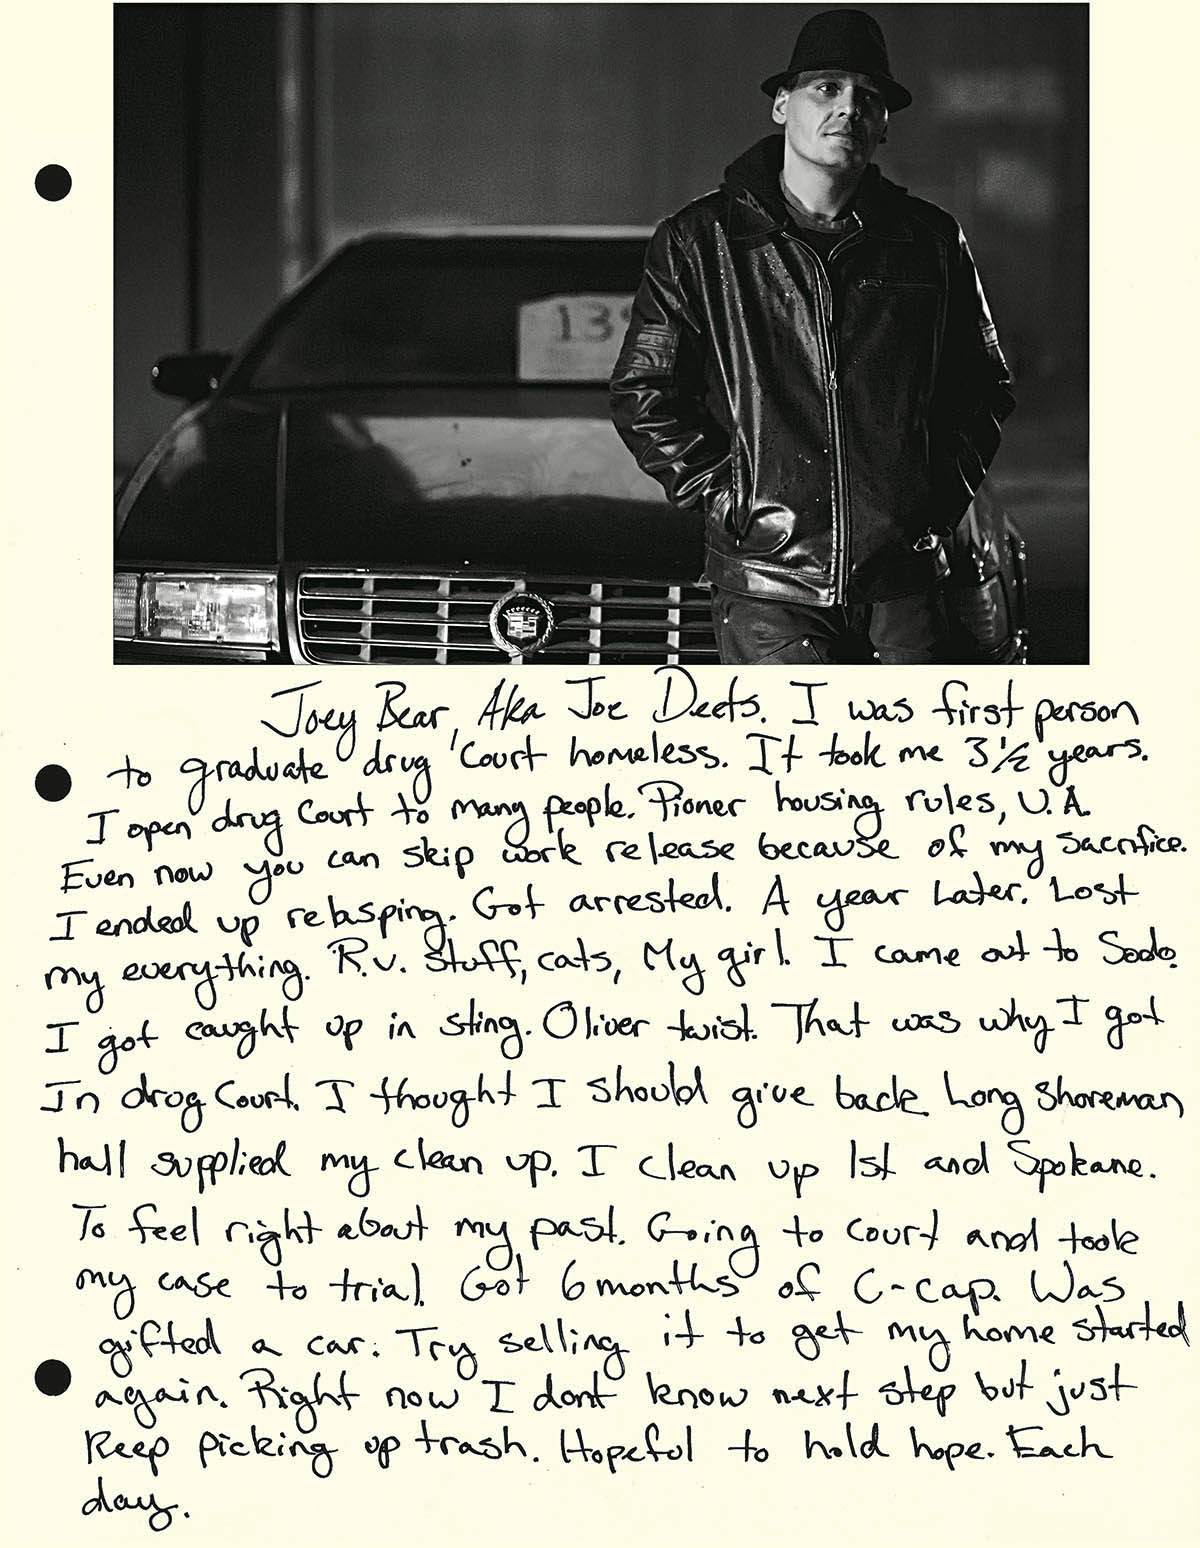 13
Joey Bear, Aka Joe Deets. I was first person
to graduate drug Court homeless. It took me 3 1/2 years.
I open drug Court to many people. Pioner housing rules, U.A.
Even now you can skip work release because of my sacrifice.
I ended up relasping. Got arrested. A year Later. Lost
my everything. R.v. stuff, cats, My girl. I came out to Sodo.
I got caught up in sting. Oliver twist. That was why I got
In drug Court. I thought I should give back. Long Shoreman
hall supplied my clean up. I clean up 1st and Spokane.
To feel right about my past. Going to court and took
my case to trial. Got 6 months of C-cap. Was
gifted a car. Try selling it to get my home started
again. Right now I dont know next step but just
Keep picking up trash. Hopeful to hold hope. Each
day.